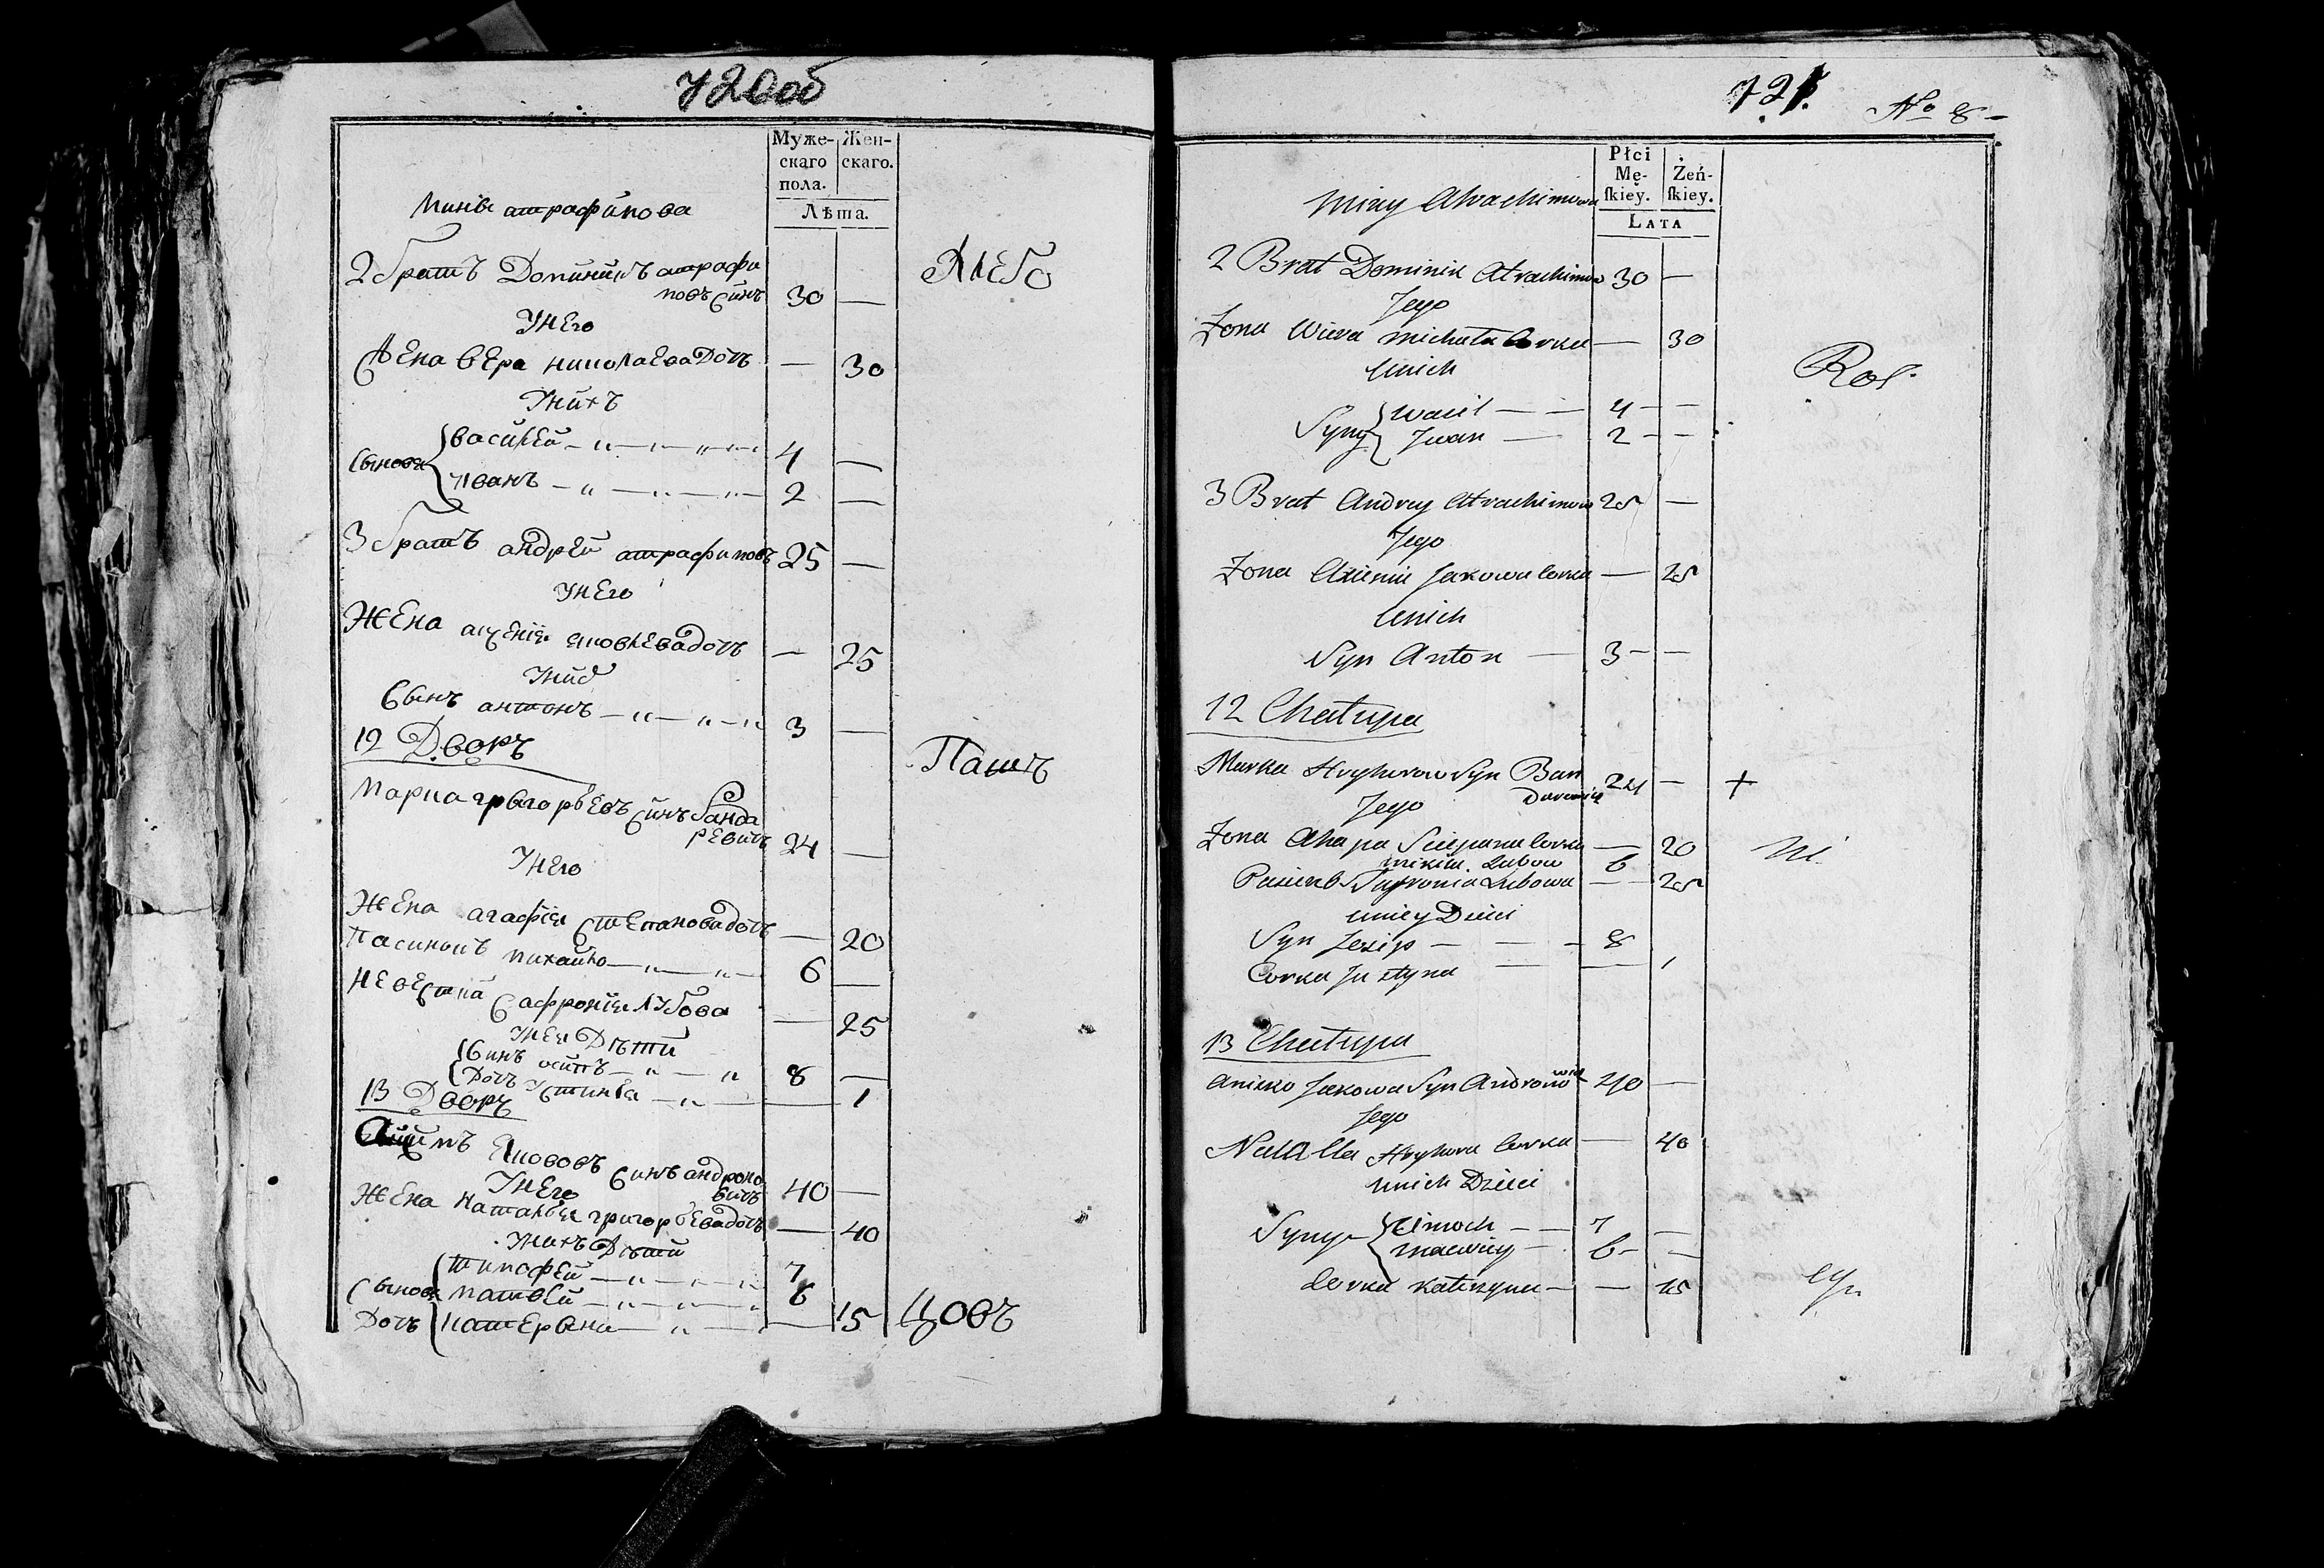 720об
Муже-
скаго
пола.
Жен-
скаго.
Лѣта.
Мины атрафимова
2 братъ Доминикъ атрафи
мовъ синъ 30 —
У него
Жена Вера николаева дочь — 30
У нихъ
Сыновя
василей 4 —
иванъ 2 —
3 братъ андрей атрафимовъ 25 —
У него
Жена аксения яковлева дочь — 25
У них
Сынъ антонъ 3 —
12 Дворъ
Марка григорьевъ синъ банда
ревичъ 24 —
У него
Жена агафия степанова дочь — 20
Пасинокъ михайло 6 —
Невестка сафрония лубова — 25
У нея Дѣти
Синъ осипъ 8 —
Дочь устиния — 1
13 Дворъ
Яковов синъ андроно
вичъ 40 —
У него
Жена наталья григорьева дочь — 40
У нихъ Дѣти
Сыновя
тимофей 7
матвей 6
Дочь катерина — 15
ХЛЕБО
Пашъ
цовъ
721.
No 8 -
Płci
Mę-
skiey.
Żeń-
skiey.
LATA
Miny Atrachimowa
2 Brat Dominik Atrachimow 30 —
Jego
Zona Wiera Michała Corka — 30
Unich
Syny
Wasil — — 4 — —
Jwan — 2 — —
3 Brat Andrey Atrachimow 25 —
Jego
Zona Axienia Jakowa Corka — 25
Unich
Syn Anton — 3 — —
12 Chałupa
Marka Hryhorow Syn Ban
Darewicz 24 — +
Jego
Zona Ahapa Sciepana Corka — 20
Mikita Lubow 6
Pasierb Saphronia Lubowa — 25
Uniey Dzieci
Syn Jezip — — — 8
Corka Justyna — — 1
13 Chałupa
Jakowa Syn Andronowicz 40 —
Jego
Natalla Hryhora Corka — 40
Unich Dzieci
Syny
Cimoch — — 7 —
Macwiey — 6 - —
Corka Katerzyna — — 15
Rol
ni